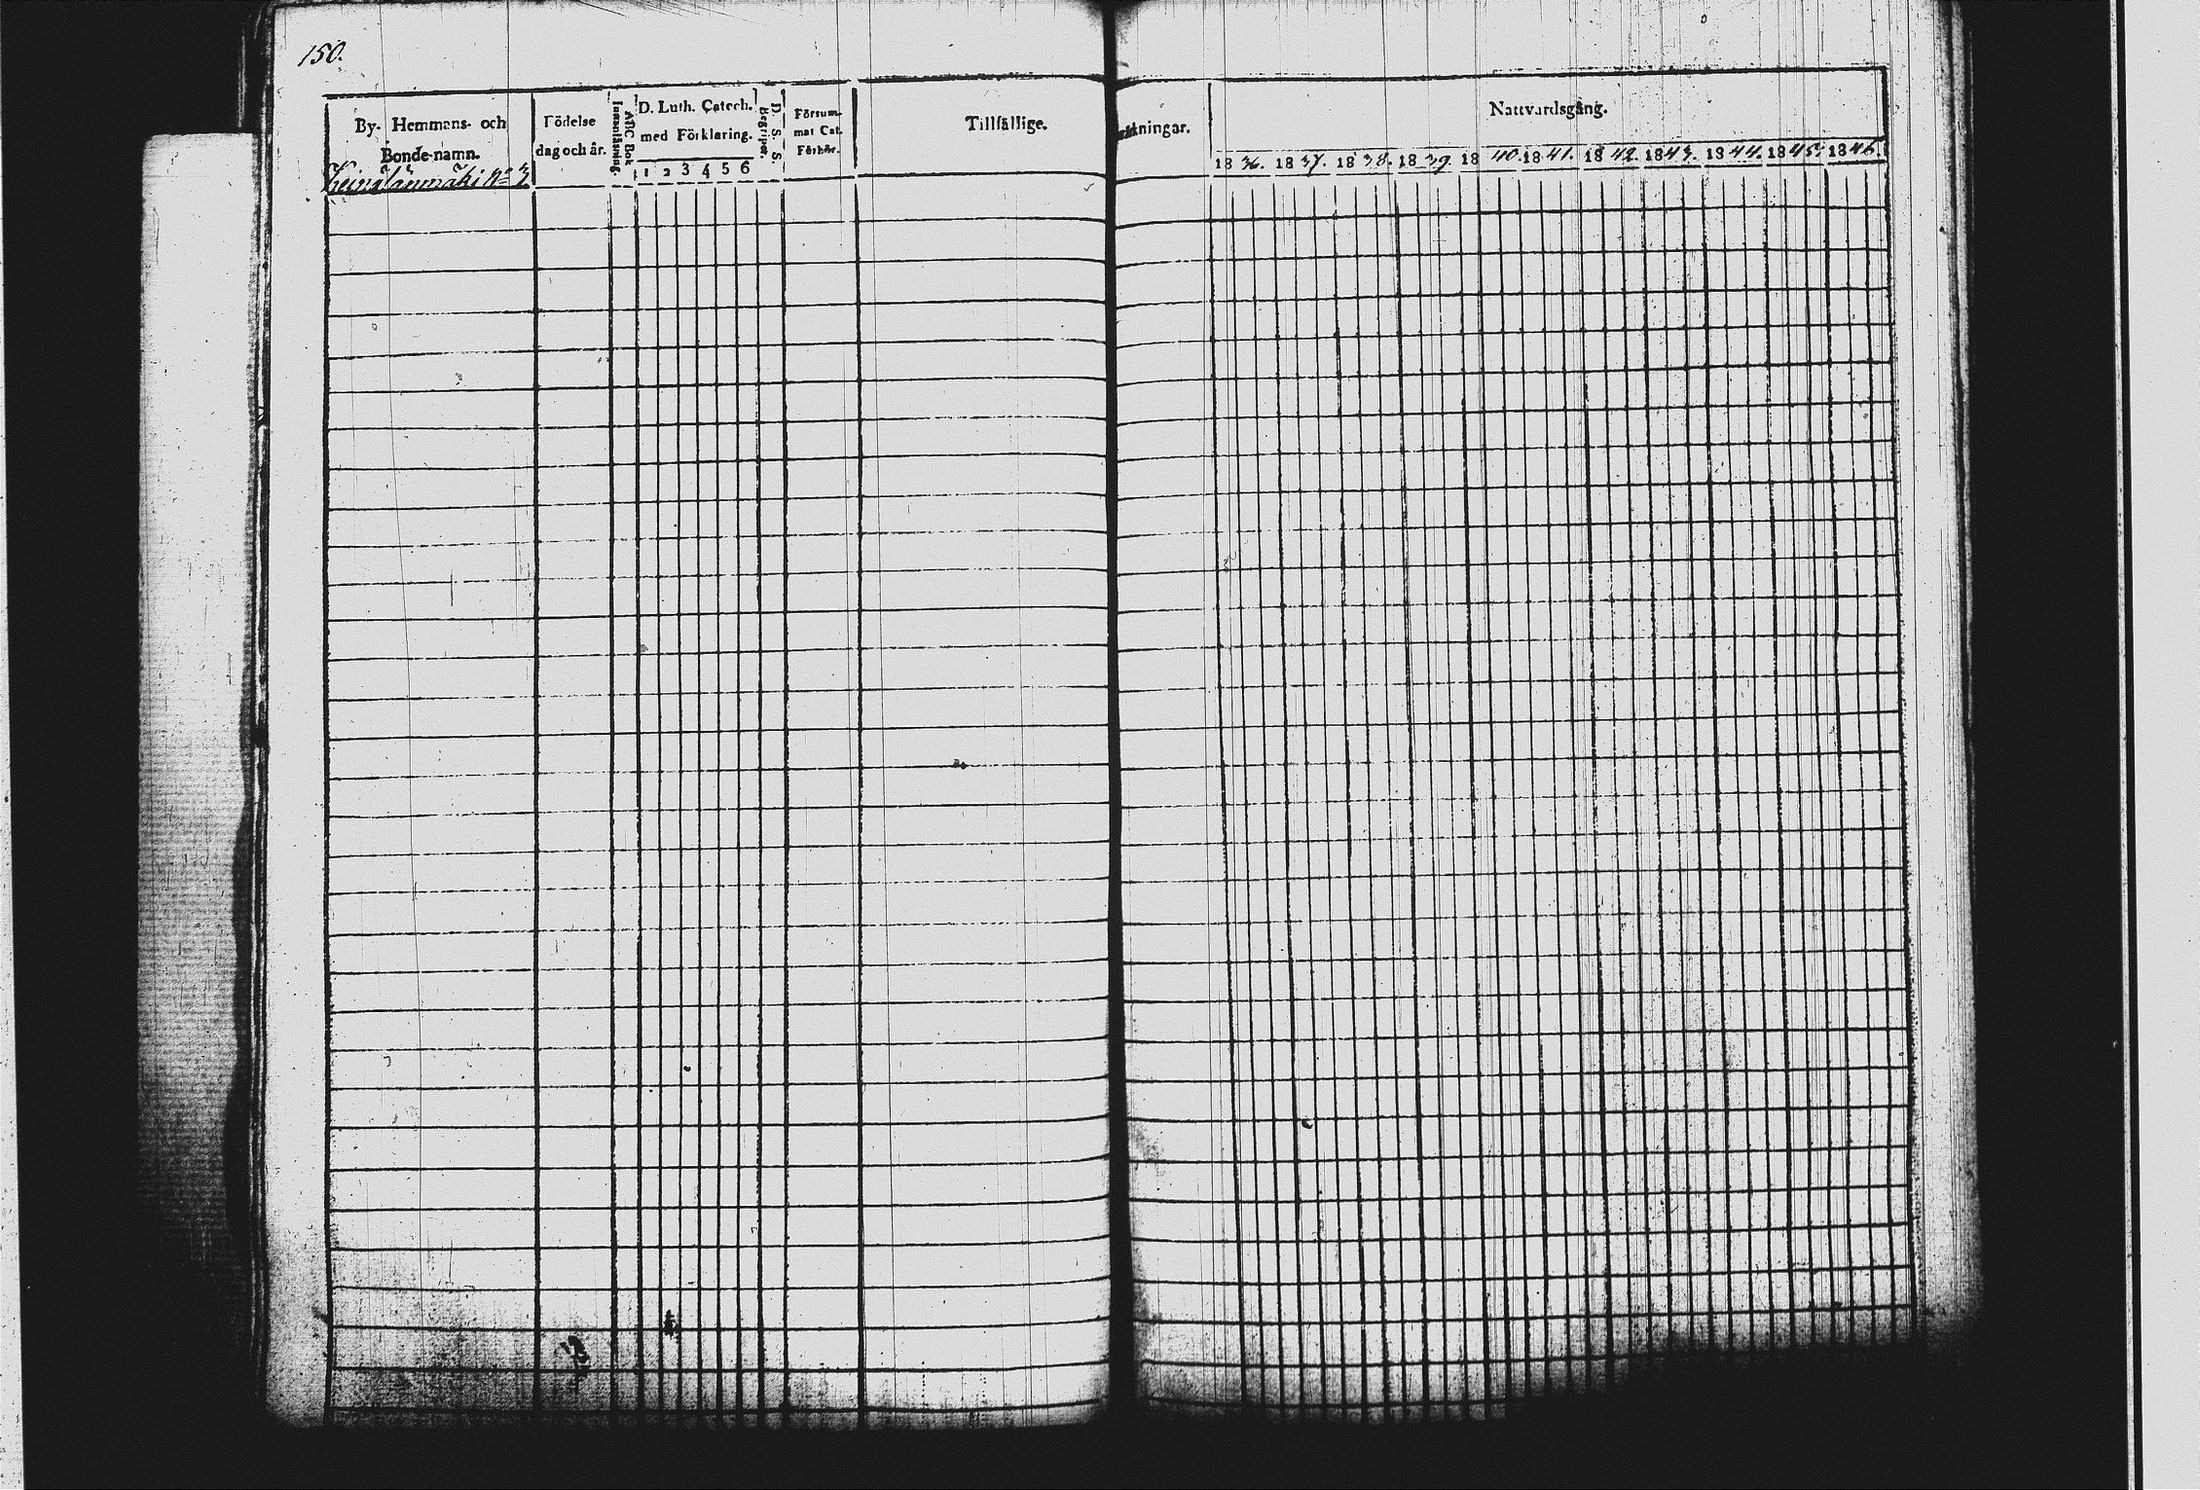 150.
By- Hemmans- och
Bonde-namn.
Födelse
dag och år.
ABC Bok
Innanläsning
D. Luth. Catech.
med Förklaring.
1 2 3 4 5 6
D. S. S.
Begripet.
Försum-
mat Cat.
Förhör.
Tillfällige.
Nattvardsgång.
1836. 1837. 1838. 1839. 1840. 1841. 1842. 1843. 1844. 1845. 1846.
No 3